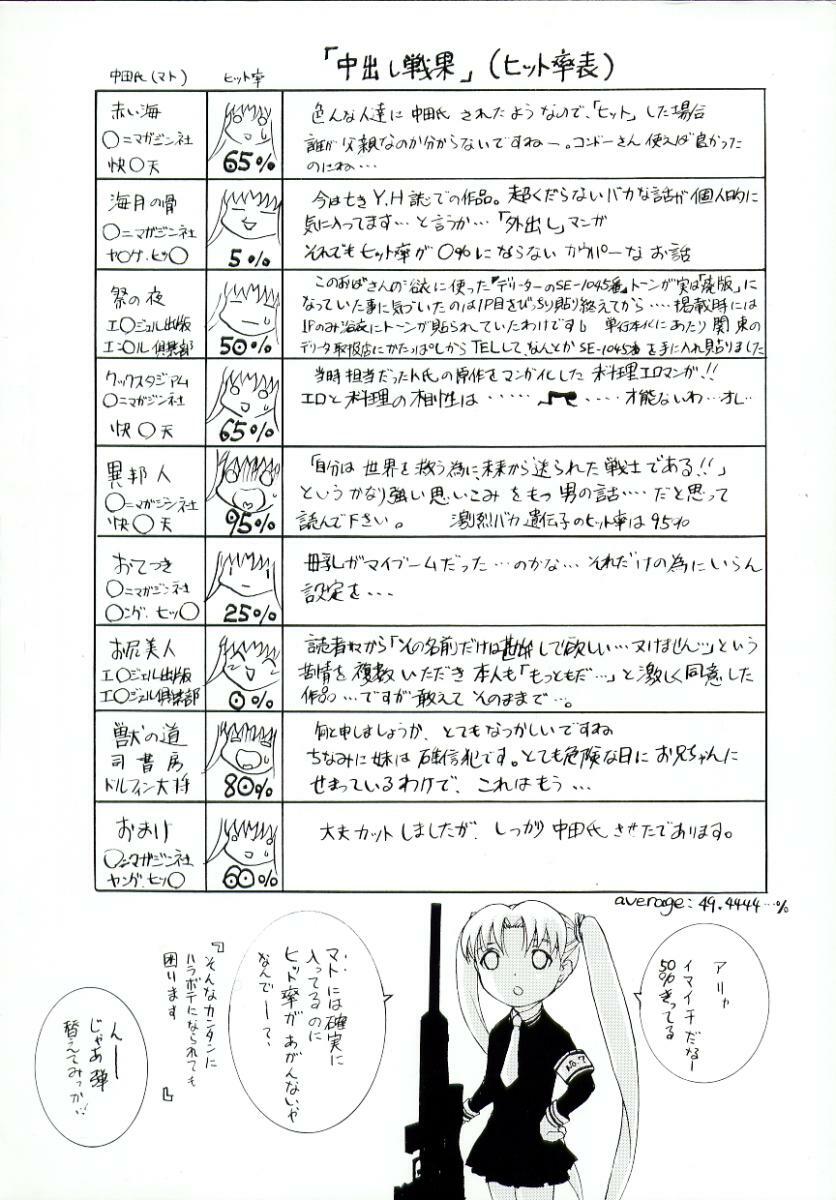 「中出し戦果」（ヒット率表）
中田氏（マト）
ヒット率
赤い海
〇ニマガジン社
快〇天
65%
色んな人達に中田氏されたようなので、「ヒット」した場合
誰が父親なのか分からないですねー。コンドーさん使えば良かった
のにね…
海月の骨
〇ニマガジン社
ヤ〇グ.ヒッ〇
5%
今は亡きY.H誌での作品。超くだらないバカな話が個人的に
気に入ってます…と言うか…「外出し」マンガ
それでもヒット率が0%にならないカウパーなお話
祭の夜
エ〇ジェル出版
エン〇ル倶楽部
50%
このおばさんの浴衣に使った『デリーターのSE-1045番』トーンが実は「廃版」に
なっていた事に気づいたのは1P目をびっちり貼り終えてから‥‥掲載時には
1Pのみ浴衣にトーンが貼られていたわけです。単行本化にあたり関東の
デリータ取扱店にかたっぱしからTELして、なんとかSE-1045番を手に入れ貼りました
クックスタジアム
〇ニマガジン社
快〇天
65%
当時担当だったト氏の原作をマンガ化した料理エロマンガ!!
エロと料理の相性は‥‥‥
‥‥才能ないわ…オレ…
異邦人
〇ニマガジン社
快〇天
95%
「自分は世界を救う為に、未来から送られた戦士である!!」
というかなり強い思いこみをもつ男の話‥‥だと思って
読んで下さい。　激烈バカ遺伝子のヒット率は95%
おてつき
〇ニマガジン社
〇ング.ヒッ〇
25%
母乳がマイブームだった…のかな…それだけの為にいらん
設定を…
お尻美人
エ〇ジェル出版
エ〇ジェル倶楽部
0%
読者様から「その名前だけは勘弁して欲しい…ヌけません…」という
苦情を複数いただき本人も「もっともだ…」と激しく同意した
作品…ですが敢えてそのままで…。
獣の道
司書房
ドルフィン大将
80%
何と申しましょうか、とてもなつかしいですね
ちなみに妹は確信犯です。とても危険な日にお兄ちゃんに
せまっているわけで、これはもう…
おまけ
〇ニマガジン社
ヤング.ヒッ〇
60%
大丈カットしましたが、しっかり中田氏させたであります。
average：49.4444…%
アリャ
イマイチだなー
50%きってる
マトには確実に
入ってるのに
ヒット率が
あがんないや
なんでーて、
『そんなカンタンに
ハラボテになられても
困ります』
んーー
じゃあ弾
替えてみっか…